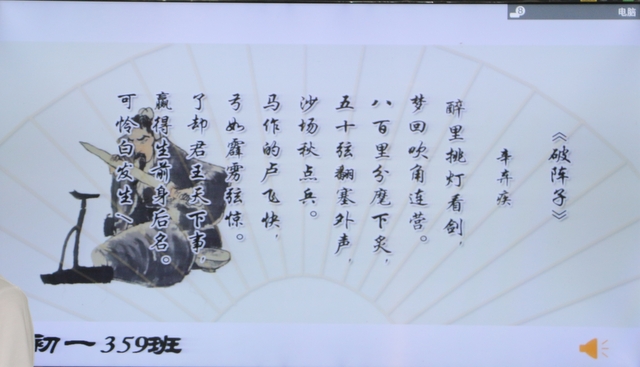 电脑
《破阵子》
辛弃疾
醉里挑灯看剑，
梦回吹角连营。
八百里分麾下炙，
五十弦翻塞外声，
沙场秋点兵。
马作的卢飞快，
弓如霹雳弦惊。
了却君王天下事，
赢得生前身后名。
可怜白发生
初一359班